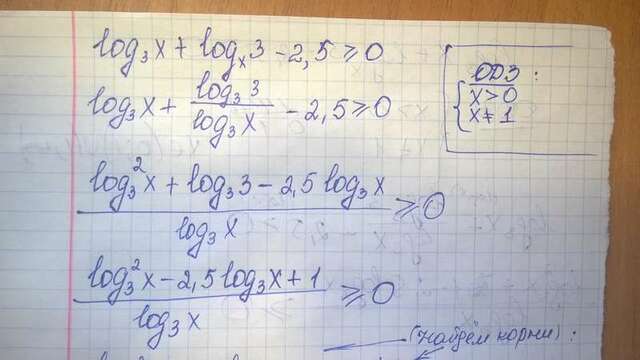 log₃x + logₓ3 - 2,5 ⩾ 0
ОДЗ:
x > 0
x ≠ 1
log₃x + log₃3 / log₃x - 2,5 ⩾ 0
log₃²x + log₃3 - 2,5 log₃x / log₃x ⩾ 0
log₃²x - 2,5 log₃x + 1 / log₃x ⩾ 0
(Найдём корни):